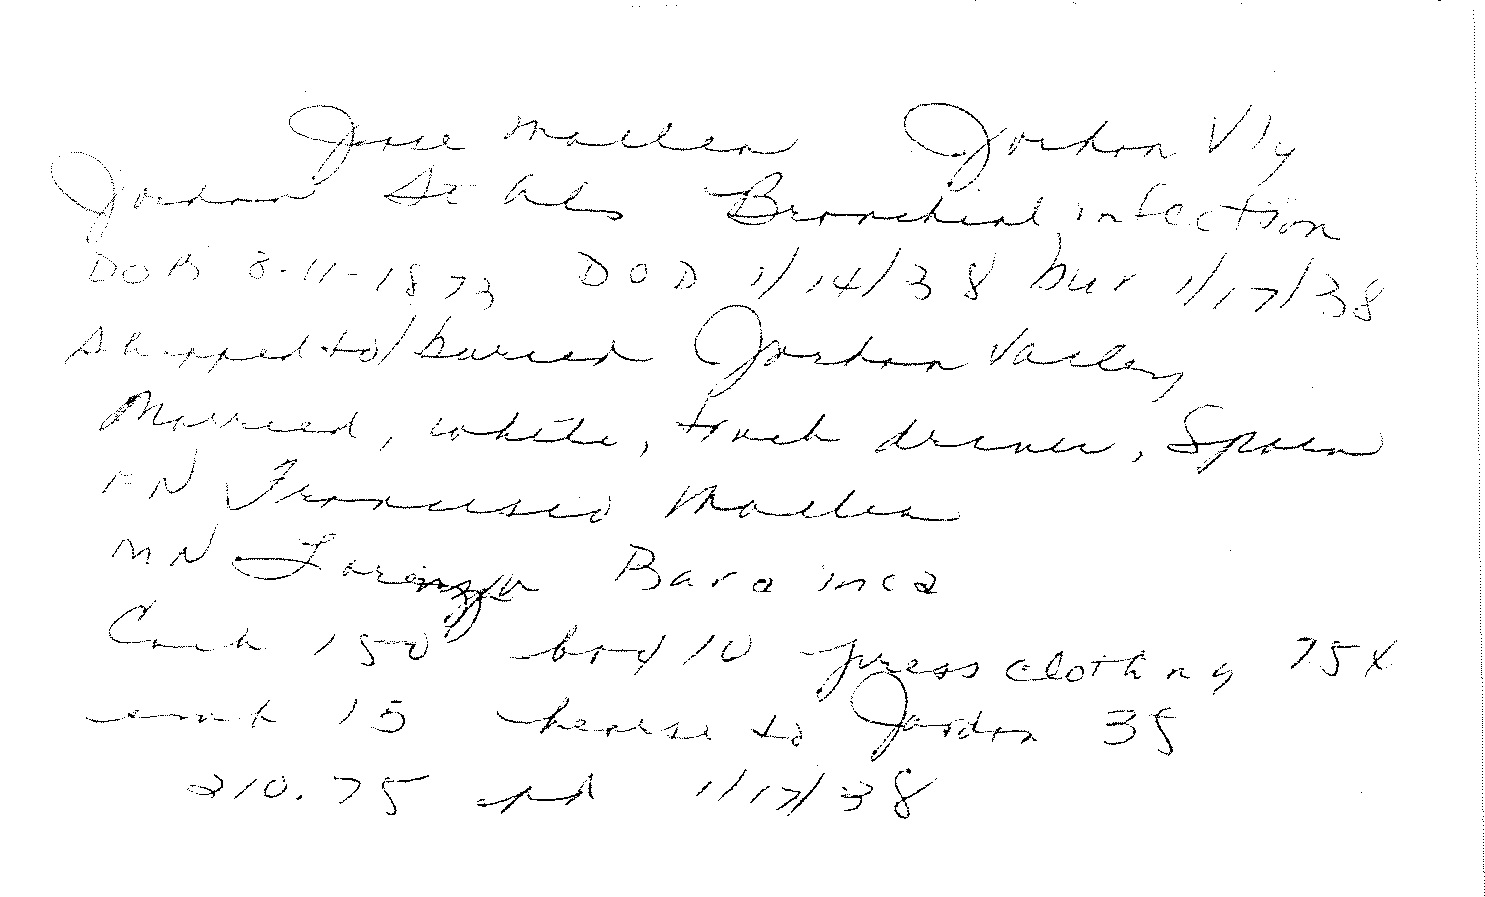 Jose Mallea Jordan Vly
Jordan St Als Bronchial infection
DOB 8-11-1873 DOD 1/14/38 bur 1/17/38
shipped to/buried Jordan Valley
Married, white, truck driver, Spain
FN Francisco Mallea
MN Lorenza Baroinca
Cash 150 box 10 press clothing 75¢
emb 15 hearse to Jordan 35
210.75 pd 1/17/38